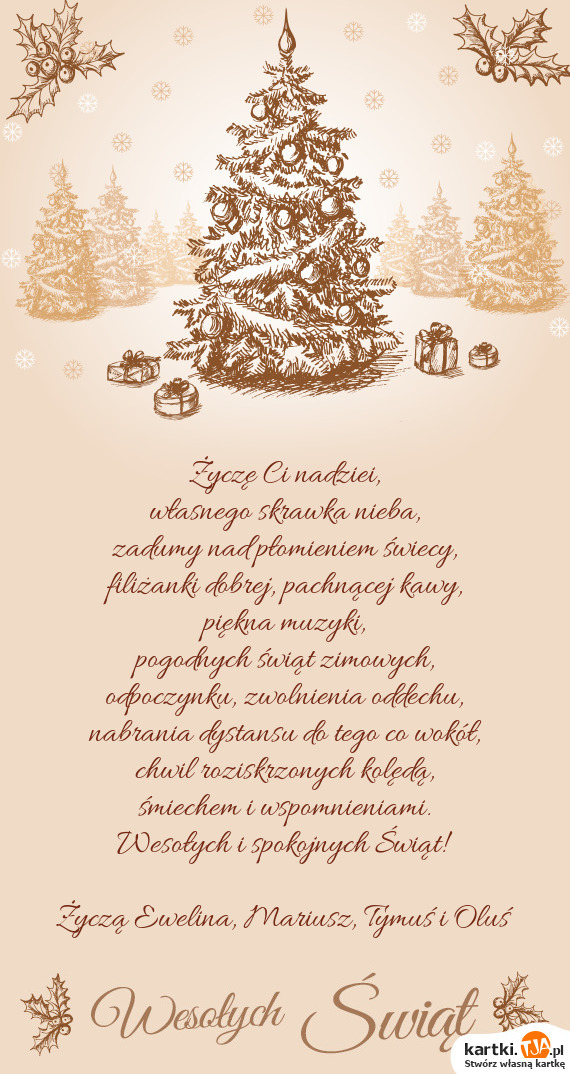 Życzę Ci nadziei,
własnego skrawka nieba,
zadumy nad płomieniem świecy,
filiżanki dobrej, pachnącej kawy,
piękna muzyki,
pogodnych świąt zimowych,
odpoczynku, zwolnienia oddechu,
nabrania dystansu do tego co wokół,
chwil roziskrzonych kolędą,
śmiechem i wspomnieniami.
Wesołych i spokojnych Świąt!
Życzą Ewelina, Mariusz, Tymuś i Oluś
Wesołych Świąt
kartki.TJA.pl
Stwórz własną kartkę